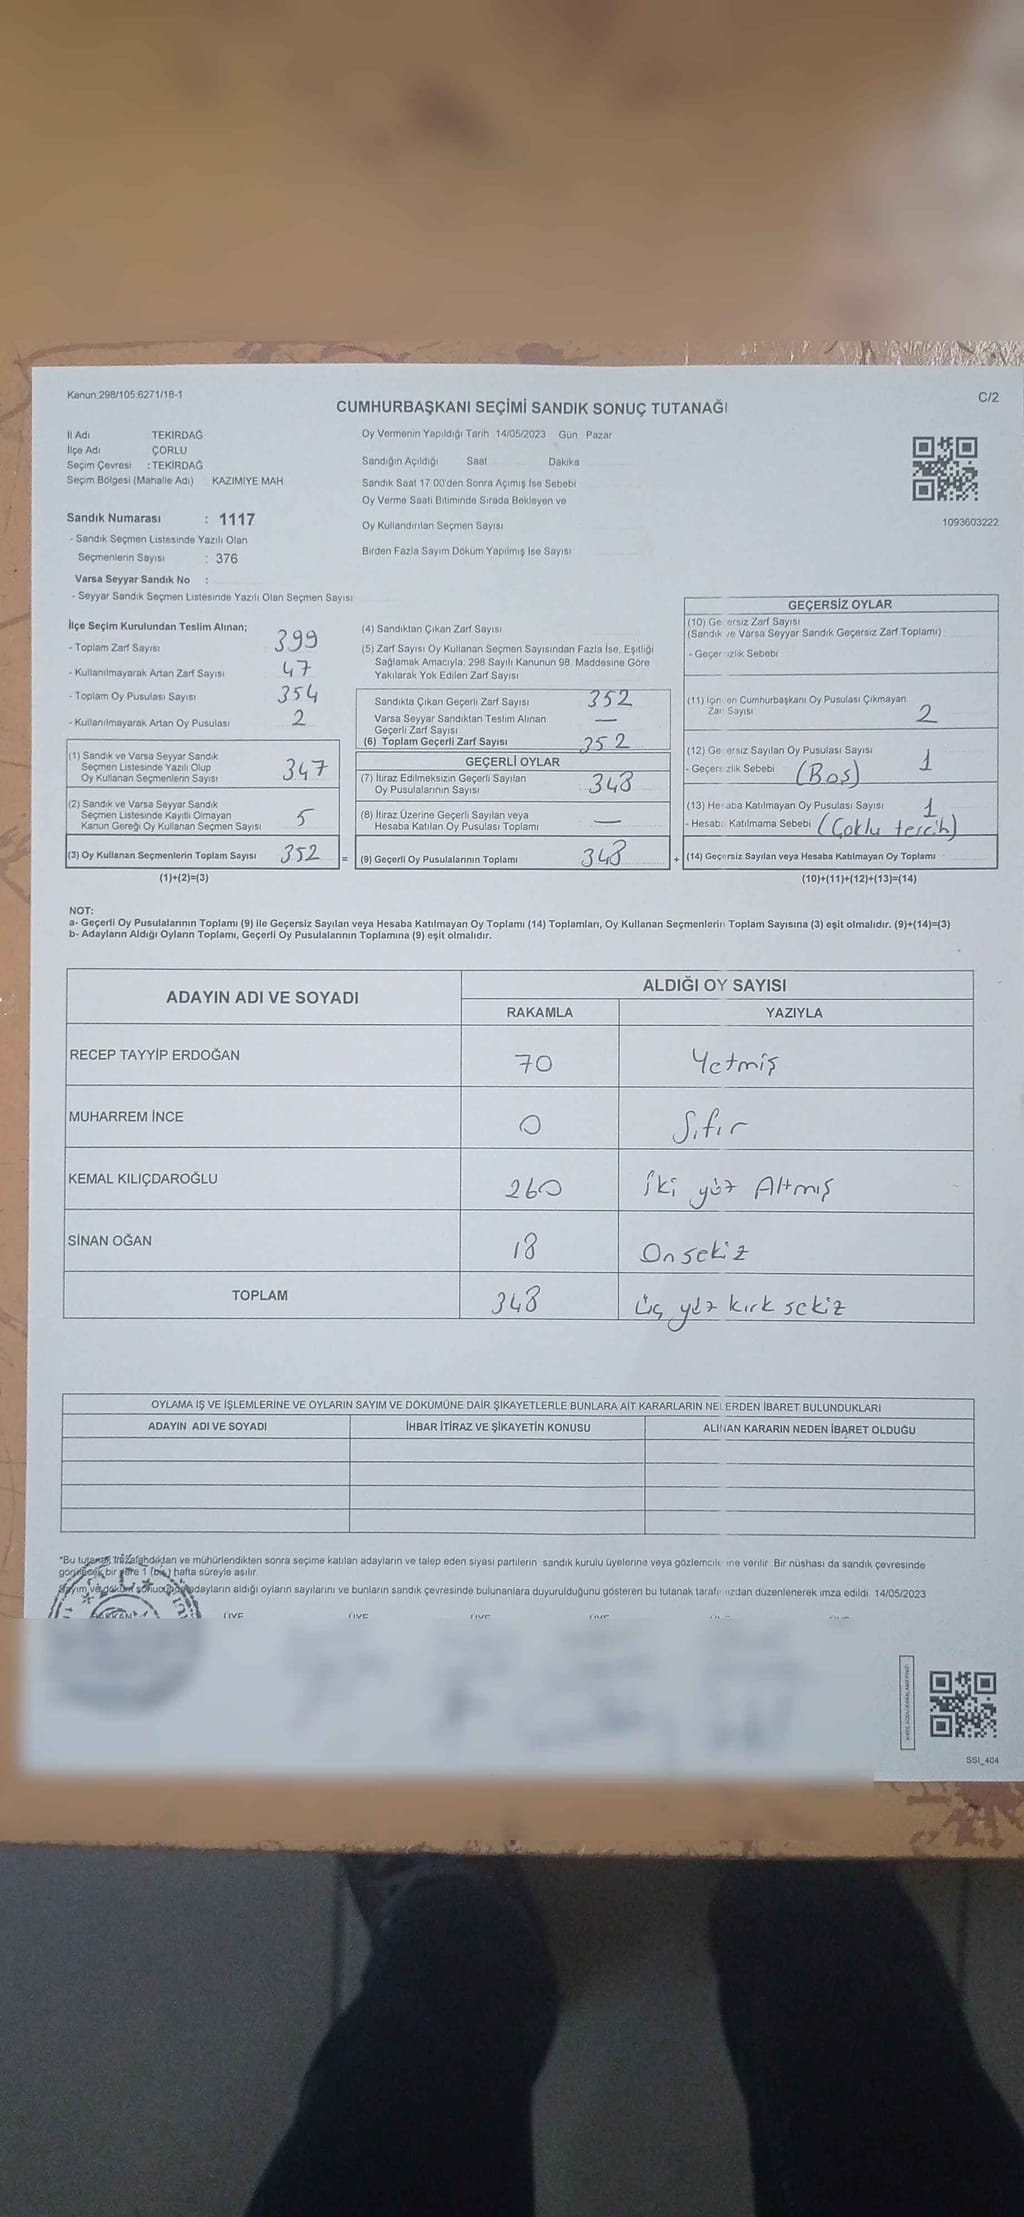 Kanun.298/105,6271/18-1
C/2
CUMHURBAŞKANI SEÇİMİ SANDIK SONUÇ TUTANAĞI
İl Adı TEKİRDAĞ
İlçe Adı ÇORLU
Seçim Çevresi : TEKİRDAĞ
Seçim Bölgesi (Mahalle Adı) KAZIMİYE MAH
Oy Vermenin Yapıldığı Tarih 14/05/2023 Gün Pazar
Sandığın Açıldığı Saat Dakika
Sandık Saat 17.00'den Sonra Açılmış İse Sebebi
Oy Verme Saati Bitiminde Sırada Bekleyen ve
Oy Kullandırılan Seçmen Sayısı
Birden Fazla Sayım Döküm Yapılmış İse Sayısı
1093603222
Sandık Numarası : 1117
- Sandık Seçmen Listesinde Yazılı Olan
Seçmenlerin Sayısı : 376
Varsa Seyyar Sandık No :
- Seyyar Sandık Seçmen Listesinde Yazılı Olan Seçmen Sayısı
İlçe Seçim Kurulundan Teslim Alınan;
- Toplam Zarf Sayısı 399
- Kullanılmayarak Artan Zarf Sayısı 47
- Toplam Oy Pusulası Sayısı 354
- Kullanılmayarak Artan Oy Pusulası 2
(1) Sandık ve Varsa Seyyar Sandık
Seçmen Listesinde Yazılı Olup
Oy Kullanan Seçmenlerin Sayısı 347
(2) Sandık ve Varsa Seyyar Sandık
Seçmen Listesinde Kayıtlı Olmayan
Kanun Gereği Oy Kullanan Seçmen Sayısı 5
(3) Oy Kullanan Seçmenlerin Toplam Sayısı 352 =
(1)+(2)=(3)
(4) Sandıktan Çıkan Zarf Sayısı
(5) Zarf Sayısı Oy Kullanan Seçmen Sayısından Fazla İse, Eşitliği
Sağlamak Amacıyla; 298 Sayılı Kanunun 98. Maddesine Göre
Yakılarak Yok Edilen Zarf Sayısı
Sandıkta Çıkan Geçerli Zarf Sayısı 352
Varsa Seyyar Sandıktan Teslim Alınan
Geçerli Zarf Sayısı —
(6) Toplam Geçerli Zarf Sayısı 352
GEÇERLİ OYLAR
(7) İtiraz Edilmeksizin Geçerli Sayılan
Oy Pusulalarının Sayısı 348
(8) İtiraz Üzerine Geçerli Sayılan veya
Hesaba Katılan Oy Pusulası Toplamı —
(9) Geçerli Oy Pusulalarının Toplamı 348 +
GEÇERSİZ OYLAR
(10) Geçersiz Zarf Sayısı
(Sandık ve Varsa Seyyar Sandık Geçersiz Zarf Toplamı)
- Geçersizlik Sebebi
(11) İçinden Cumhurbaşkanı Oy Pusulası Çıkmayan
Zarf Sayısı 2
(12) Geçersiz Sayılan Oy Pusulası Sayısı
- Geçersizlik Sebebi (Boş) 1
(13) Hesaba Katılmayan Oy Pusulası Sayısı 1
- Hesaba Katılmama Sebebi (Çoklu tercih)
(14) Geçersiz Sayılan veya Hesaba Katılmayan Oy Toplamı
(10)+(11)+(12)+(13)=(14)
NOT:
a- Geçerli Oy Pusulalarının Toplamı (9) ile Geçersiz Sayılan veya Hesaba Katılmayan Oy Toplamı (14) Toplamları, Oy Kullanan Seçmenlerin Toplam Sayısına (3) eşit olmalıdır. (9)+(14)=(3)
b- Adayların Aldığı Oyların Toplamı, Geçerli Oy Pusulalarının Toplamına (9) eşit olmalıdır.
ADAYIN ADI VE SOYADI
ALDIĞI OY SAYISI
RAKAMLA YAZIYLA
RECEP TAYYİP ERDOĞAN 70 Yetmiş
MUHARREM İNCE 0 Sıfır
KEMAL KILIÇDAROĞLU 260 İki yüz Altmış
SİNAN OĞAN 18 On sekiz
TOPLAM 348 Üç yüz kırk sekiz
OYLAMA İŞ VE İŞLEMLERİNE VE OYLARIN SAYIM VE DÖKÜMÜNE DAİR ŞİKAYETLERLE BUNLARA AİT KARARLARIN NELERDEN İBARET BULUNDUKLARI
ADAYIN ADI VE SOYADI İHBAR İTİRAZ VE ŞİKAYETİN KONUSU ALINAN KARARIN NEDEN İBARET OLDUĞU
*Bu tutanak imzalandıktan ve mühürlendikten sonra seçime katılan adayların ve talep eden siyasi partilerin sandık kurulu üyelerine veya gözlemcilerine verilir. Bir nüshası da sandık çevresinde
görünecek bir yere 1 (bir) hafta süreyle asılır.
Sayım ve döküm sonucunda adayların aldığı oyların sayılarını ve bunların sandık çevresinde bulunanlara duyurulduğunu gösteren bu tutanak tarafımızdan düzenlenerek imza edildi. 14/05/2023
SSI_404